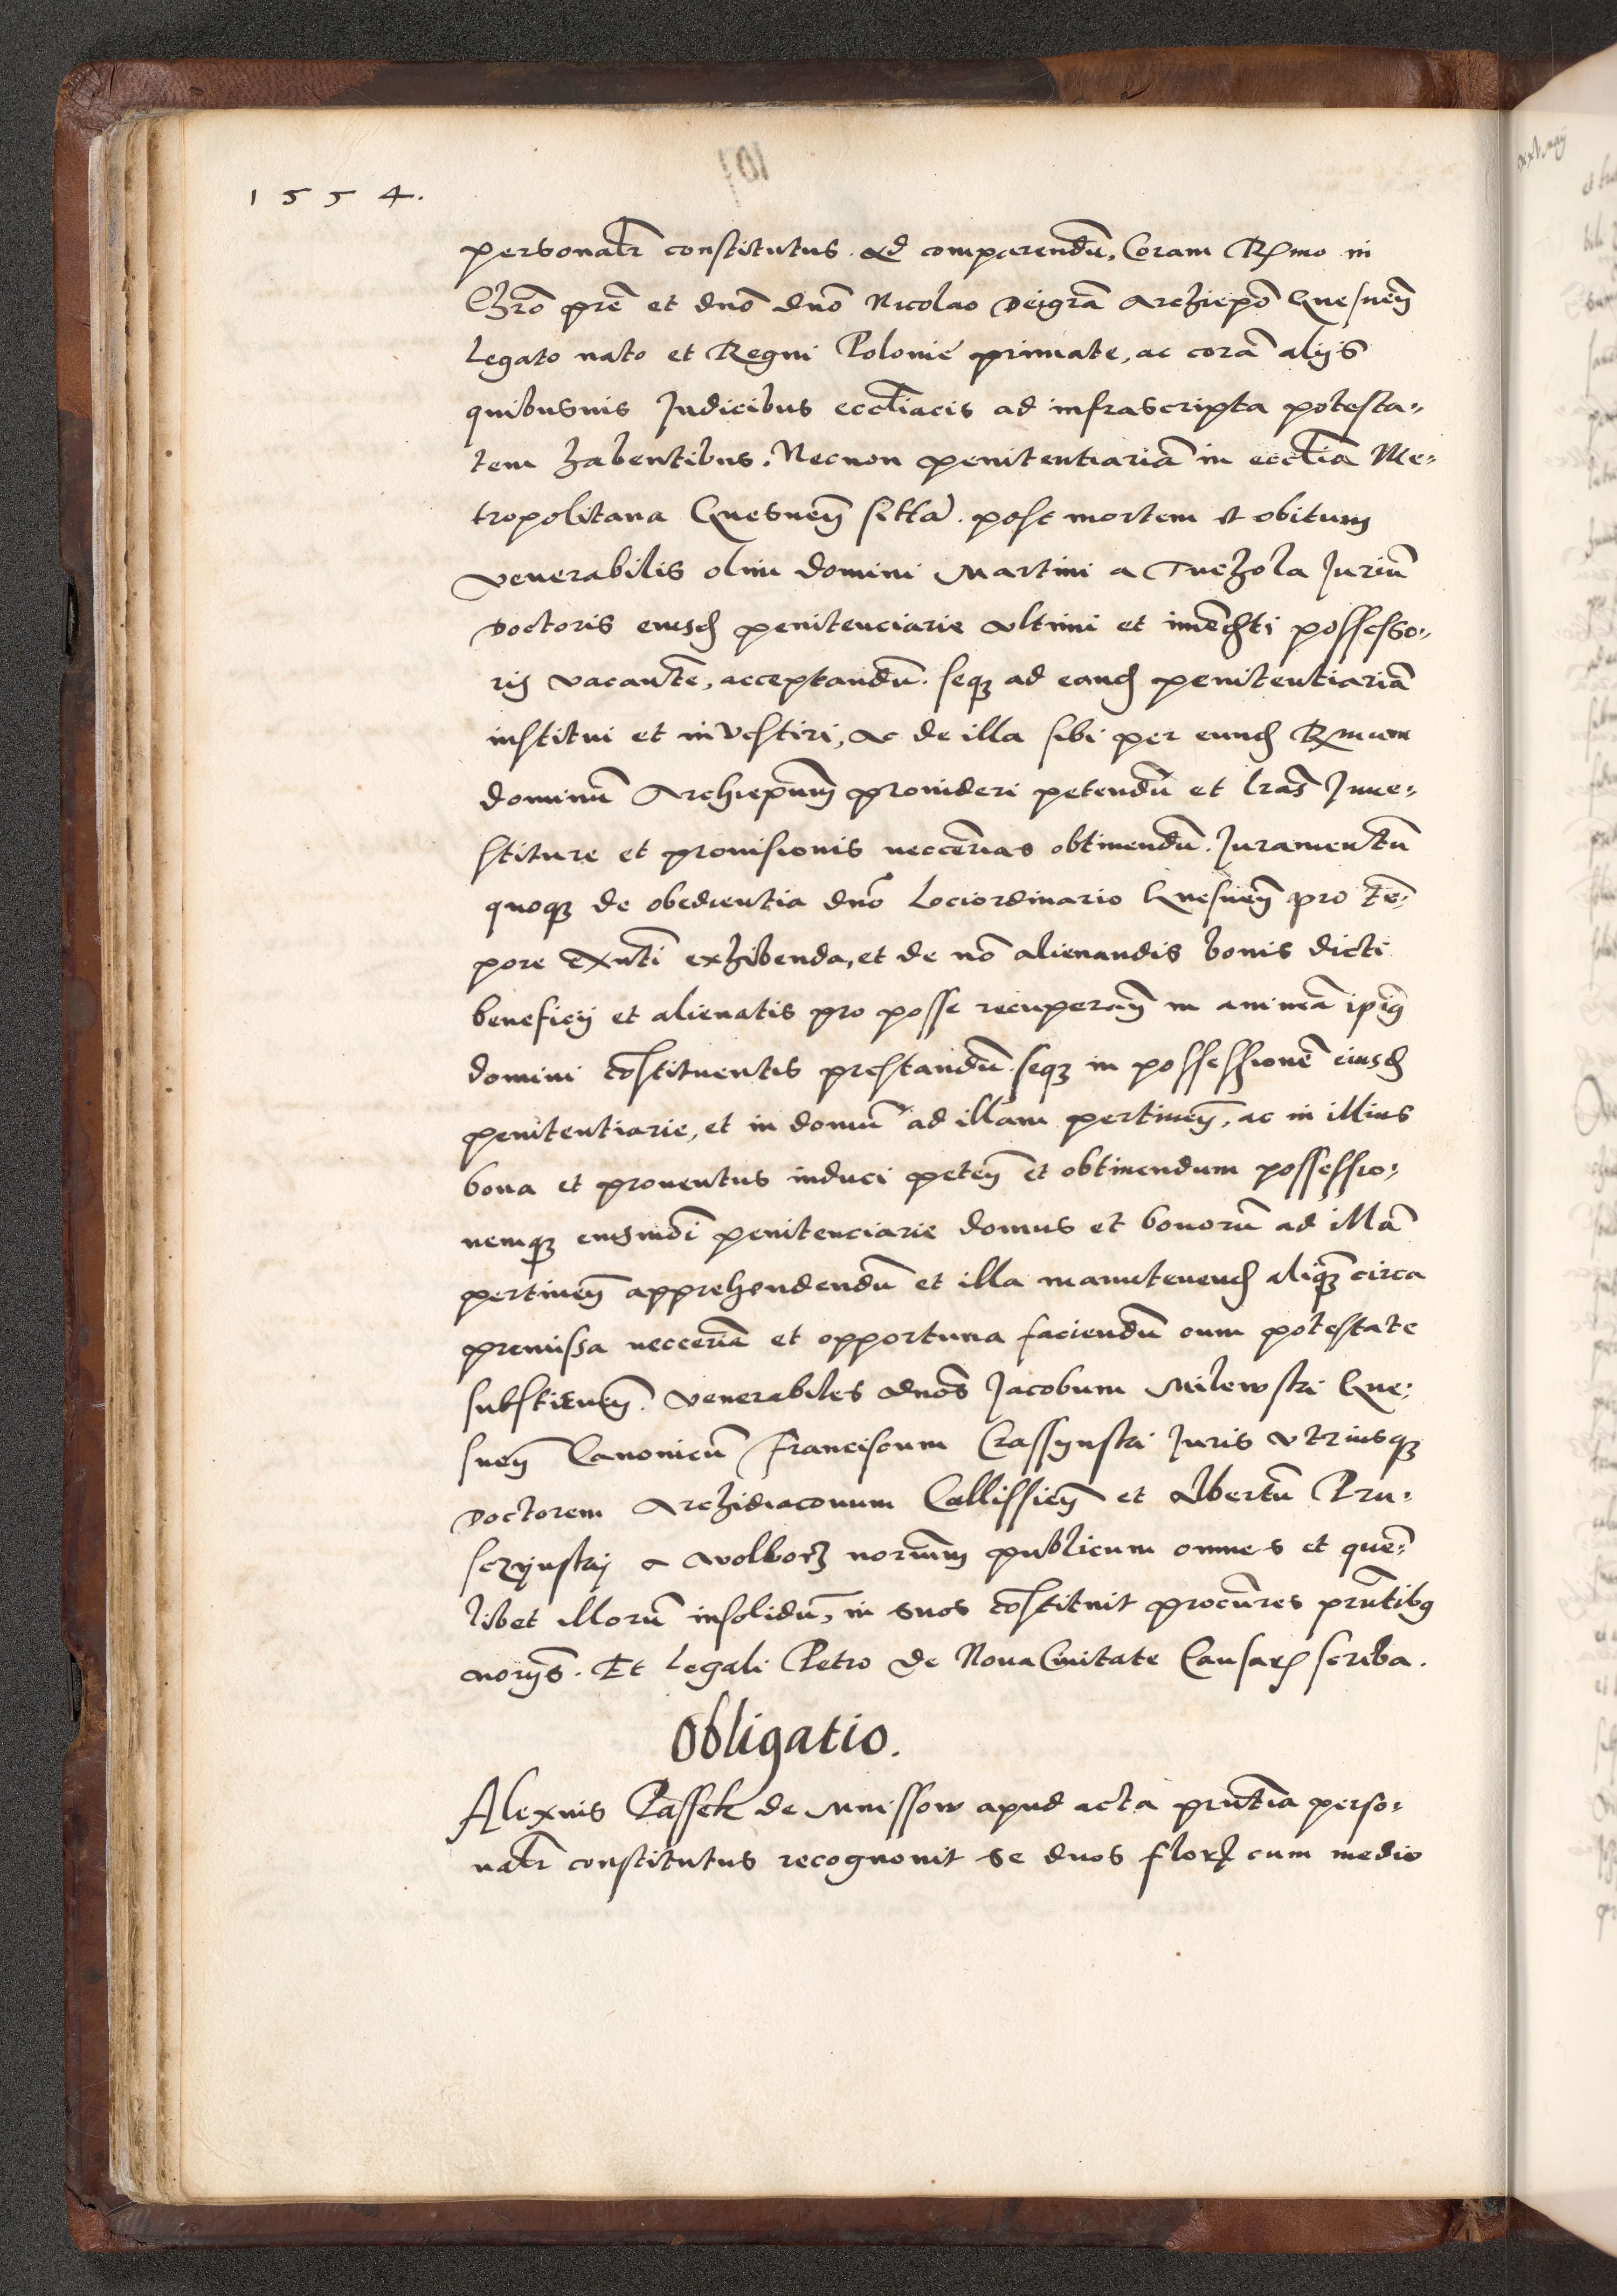 1554.
personalr constitutus. Ad comparendū, Coram Rmo in
Chrō prē et dnō dnō Nicolao Deigrā Archiepō Gnesneñ
Legato nato et Regni Polonię primate, ac corā alijs
quibusuis Judicibus eccliacis ad infrascripta potesta-
tem habentibus. Necnon penitentiariā in ecclia Me-
tropolitana Gnesneñ sittā. post mortem et obitum
Venerabilis olim domini Martini a Tuchola Juriū
Doctoris eiusd penitenciarie vltimi et imēdti possesso-
ris vacantē, acceptandū. seqz ad eand penitentiariā
institui et inVestiri, ac de illa sibi per eund Rmum
dominū Archiepum prouideri petendū et lras Jnue-
stiture et prouisionis neccerias obtinendū. Juramentū
quoqz de obedientia dnō Lociordinario Gnesneñ pro tē-
pore exnti exhibenda, et de nō alienandis bonis dicti
beneficij et alienatis pro posse recuperañ in animā ipiq
domini cōstituentis prestandū. seqz in possessionē eiusd
penitentiarie, et in domū ad illam pertineñ, ac in illius
bona et prouentus induci peteñ et obtinendum possessio-
nemqz eiusmōi penitenciarie domus et bonorū ad illā
pertineñ apprehendendū et illa manutenend aliaqz circa
premissa necceria et opportuna faciendū cum potestate
substitueñ. Venerabiles dnos Jacobum Milewski Gne-
sneñ Canonicū Franciscum Crassynski Juris Vtriusqz
Doctorem Archidiaconum Callissieñ et Albertū Pru-
sczynskij a Wolborz norium publicum omnes et quē-
libet illorū insolidū, in suos cōstituit procures prntibq
norijs. Et Legali Petro de NouaCiuitate Causar scriba.
Obligatio.
Alexius Passek de Mnissow apud acta prntia perso-
nalr constitutus recognouit se duos flor cum medio